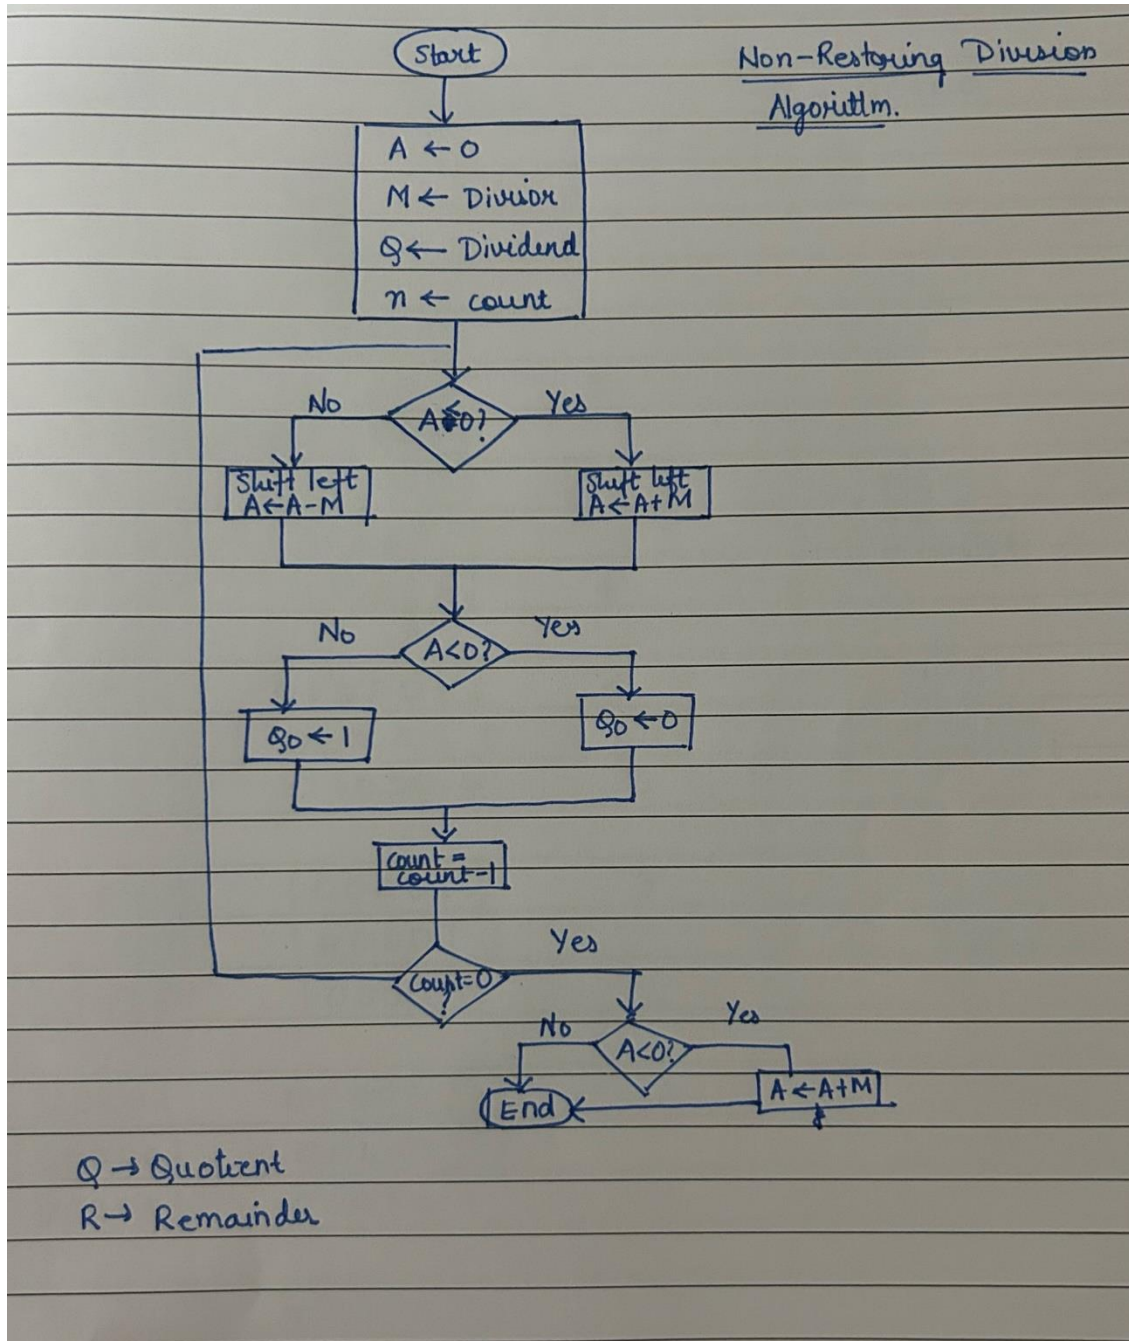 Start
Non-Restoring Division
Algorithm.
A ← 0
M ← Divisor
Q ← Dividend
n ← count
No
Yes
Shift left
A ← A - M
Shift left
A ← A + M
No
A<0?
Yes
Q0 ← 1
Q0 ← 0
count =
count-1
Yes
count=0
?
No
A<0?
Yes
End
A ← A+M
Q → Quotient
R → Remainder